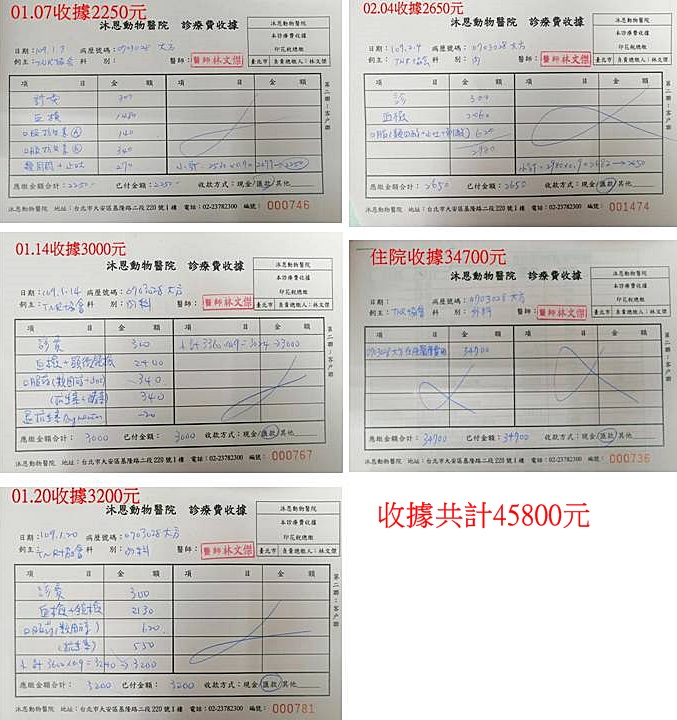 01.07收據2250元
沐恩動物醫院 診療費收據
沐恩動物醫院
本診療費收據
印花稅總繳
臺北市 負責總繳人:林文傑
日期:109.1.7 病歷號碼:0703028 大方
飼主:TNR協會 科 別: 醫師:醫師林文傑
項 目 金 額 項 目 金 額
診費 300
血檢 1480
340
應繳金額合計:2250 已付金額:2250 收款方式:現金/匯款/其他
第二聯:客戶聯
沐恩動物醫院 地址:台北市大安區基隆路二段220號1樓 電話:02-23782300 編號:000746
02.04收據2650元
沐恩動物醫院 診療費收據
沐恩動物醫院
本診療費收據
印花稅總繳
臺北市 負責總繳人:林文傑
日期:109.2.4 病歷號碼:0703028 大方
飼主:TNR協會 科 別:內 醫師:醫師林文傑
項 目 金 額 項 目 金 額
診 300
血檢 2060
620
2980
應繳金額合計:2650 已付金額:2650 收款方式:現金/匯款/其他
沐恩動物醫院 地址:台北市大安區基隆路二段220號1樓 電話:02-23782300 編號:001474
01.14收據3000元
沐恩動物醫院 診療費收據
沐恩動物醫院
本診療費收據
印花稅總繳
臺北市 負責總繳人:林文傑
日期:109.1.14 病歷號碼:0703028 大方
飼主:TNR協會 科 別:外科 醫師:醫師林文傑
項 目 金 額 項 目 金 額
診費 300 小計3360x0.9=3024→3000
2440
340
340
應繳金額合計:3000 已付金額:3000 收款方式:現金/匯款/其他
沐恩動物醫院 地址:台北市大安區基隆路二段220號1樓 電話:02-23782300 編號:000767
住院收據34700元
沐恩動物醫院 診療費收據
沐恩動物醫院
本診療費收據
印花稅總繳
臺北市 負責總繳人:林文傑
日期: 病歷號碼:0703028 大方
飼主:TNR協會 科 別:外科 醫師:醫師林文傑
項 目 金 額 項 目 金 額
0703028大方住院醫療費用 34700
應繳金額合計:34700 已付金額:34700 收款方式:現金/匯款/其他
沐恩動物醫院 地址:台北市大安區基隆路二段220號1樓 電話:02-23782300 編號:000736
01.20收據3200元
沐恩動物醫院 診療費收據
沐恩動物醫院
本診療費收據
印花稅總繳
臺北市 負責總繳人:林文傑
日期:109.1.20 病歷號碼:0703028 大方
飼主:TNR協會 科 別:外科 醫師:醫師林文傑
項 目 金 額 項 目 金 額
診費 300
2130
620
(抗生素) 550
小計 3600x0.9=3240→3200
應繳金額合計:3200 已付金額:3200 收款方式:現金/匯款/其他
沐恩動物醫院 地址:台北市大安區基隆路二段220號1樓 電話:02-23782300 編號:000781
收據共計45800元